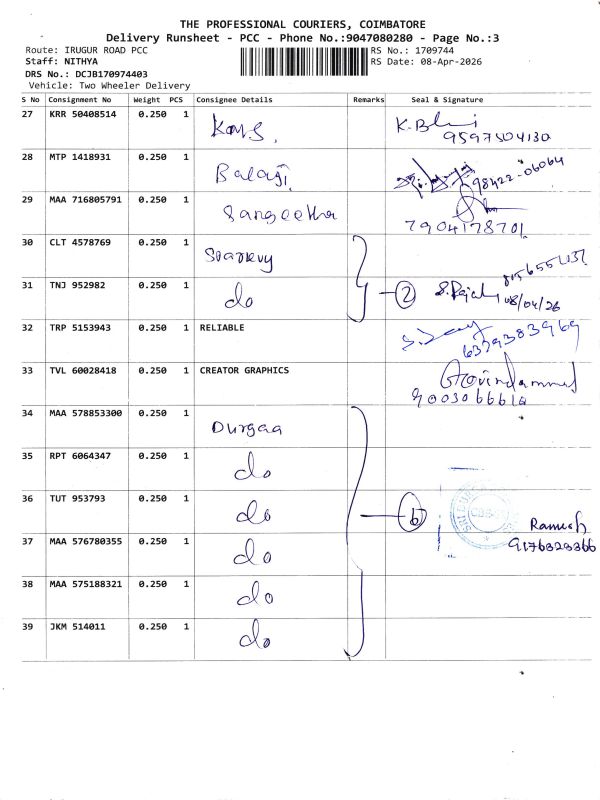 THE PROFESSIONAL COURIERS, COIMBATORE
Delivery Runsheet - PCC - Phone No.:9047080280 - Page No.:3
Route: IRUGUR ROAD PCC
RS No.: 1709744
Staff: NITHYA
RS Date: 08-Apr-2026
DRS No.: DCJB170974403
Vehicle: Two Wheeler Delivery
S No Consignment No Weight PCS Consignee Details Remarks Seal & Signature
27 KRR 50408514 0.250 1
9597504130
28 MTP 1418931 0.250 1 Balaji 98422-06064
29 MAA 716805791 0.250 1 Sangeetha
7904178701
30 CLT 4578769 0.250 1
31 TNJ 952982 0.250 1 do 2 08/04/26
32 TRP 5153943 0.250 1 RELIABLE
6379383969
33 TVL 60028418 0.250 1 CREATOR GRAPHICS Govindammal
34 MAA 578853300 0.250 1 Durgaa
35 RPT 6064347 0.250 1 do
36 TUT 953793 0.250 1 do 6 Ramesh
37 MAA 576780355 0.250 1 do
38 MAA 575188321 0.250 1 do
39 JKM 514011 0.250 1 do